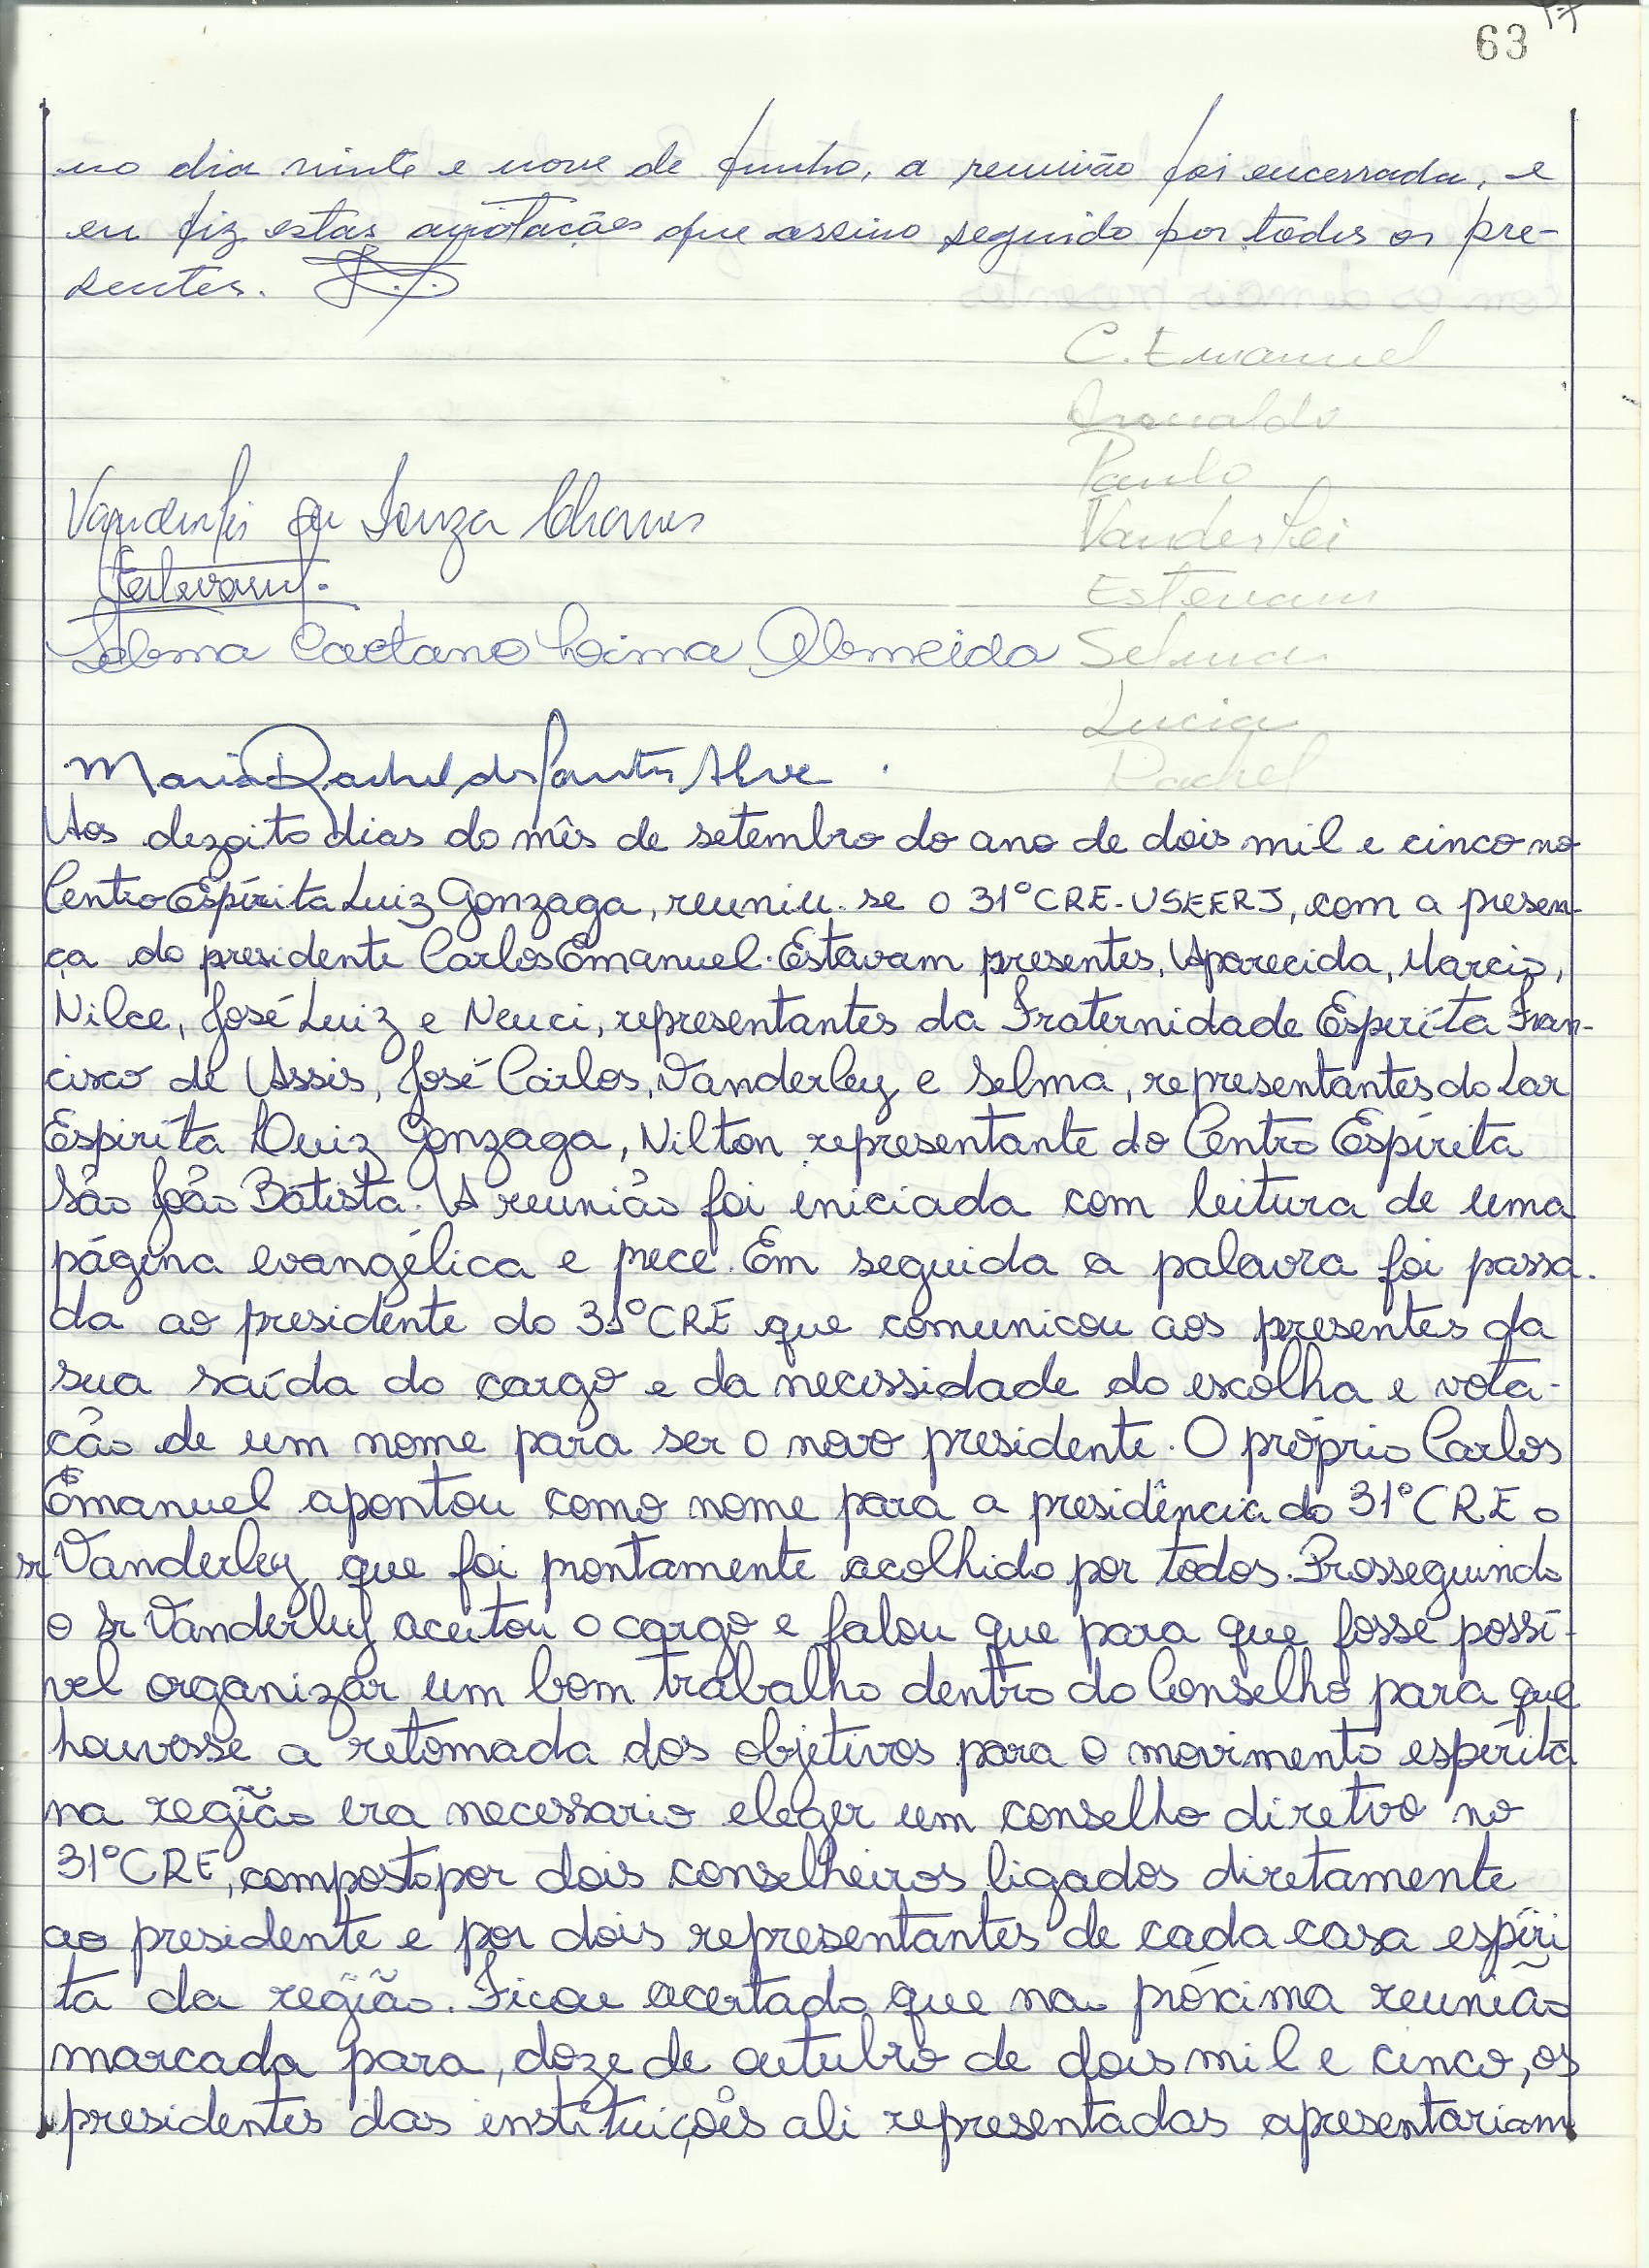 63
no dia vinte e nove de junho, a reunião foi encerrada, e
eu fiz estas anotações que assino seguido por todos os pre-
sentes.
C. Emanuel
Paulo
Vanderlei de Souza Chaves
Vanderlei
Estevam
Estevam
Selma Caetano Lima Almeida
Selma
Lucia
Maria Rachel dos Santos Alves
Rachel
Aos dezoito dias do mês de setembro do ano de dois mil e cinco no
Centro Espírita Luiz Gonzaga, reuniu-se o 31º CRE-USEERJ, com a presen-
ça do presidente Carlos Emanuel. Estavam presentes, Aparecida, Marcio,
Nilce, José Luiz e Neuci, representantes da Fraternidade Espírita Fran-
cisco de Assis, José Carlos, Vanderley e Selma, representantes do Lar
Espírita Luiz Gonzaga, Nilton representante do Centro Espírita
São João Batista. A reunião foi iniciada com leitura de uma
página evangélica e prece. Em seguida a palavra foi passa-
da ao presidente do 31º CRE que comunicou aos presentes da
sua saída do cargo e da necessidade do escolha e vota-
ção de um nome para ser o novo presidente. O próprio Carlos
Emanuel apontou como nome para a presidência do 31º CRE o
sr Vanderley que foi prontamente acolhido por todos. Prosseguindo
o sr Vanderley aceitou o cargo e falou que para que fosse possí-
vel organizar um bom trabalho dentro do Conselho para que
houvesse a retomada dos objetivos para o movimento espírita
na região era necessario eleger um conselho diretivo no
31º CRE, composto por dois conselheiros ligados diretamente
ao presidente e por dois representantes de cada casa espíri
ta da região. Ficou acertado que na próxima reunião
marcada para, doze de outubro de dois mil e cinco, os
presidentes das instituições ali representadas apresentariam